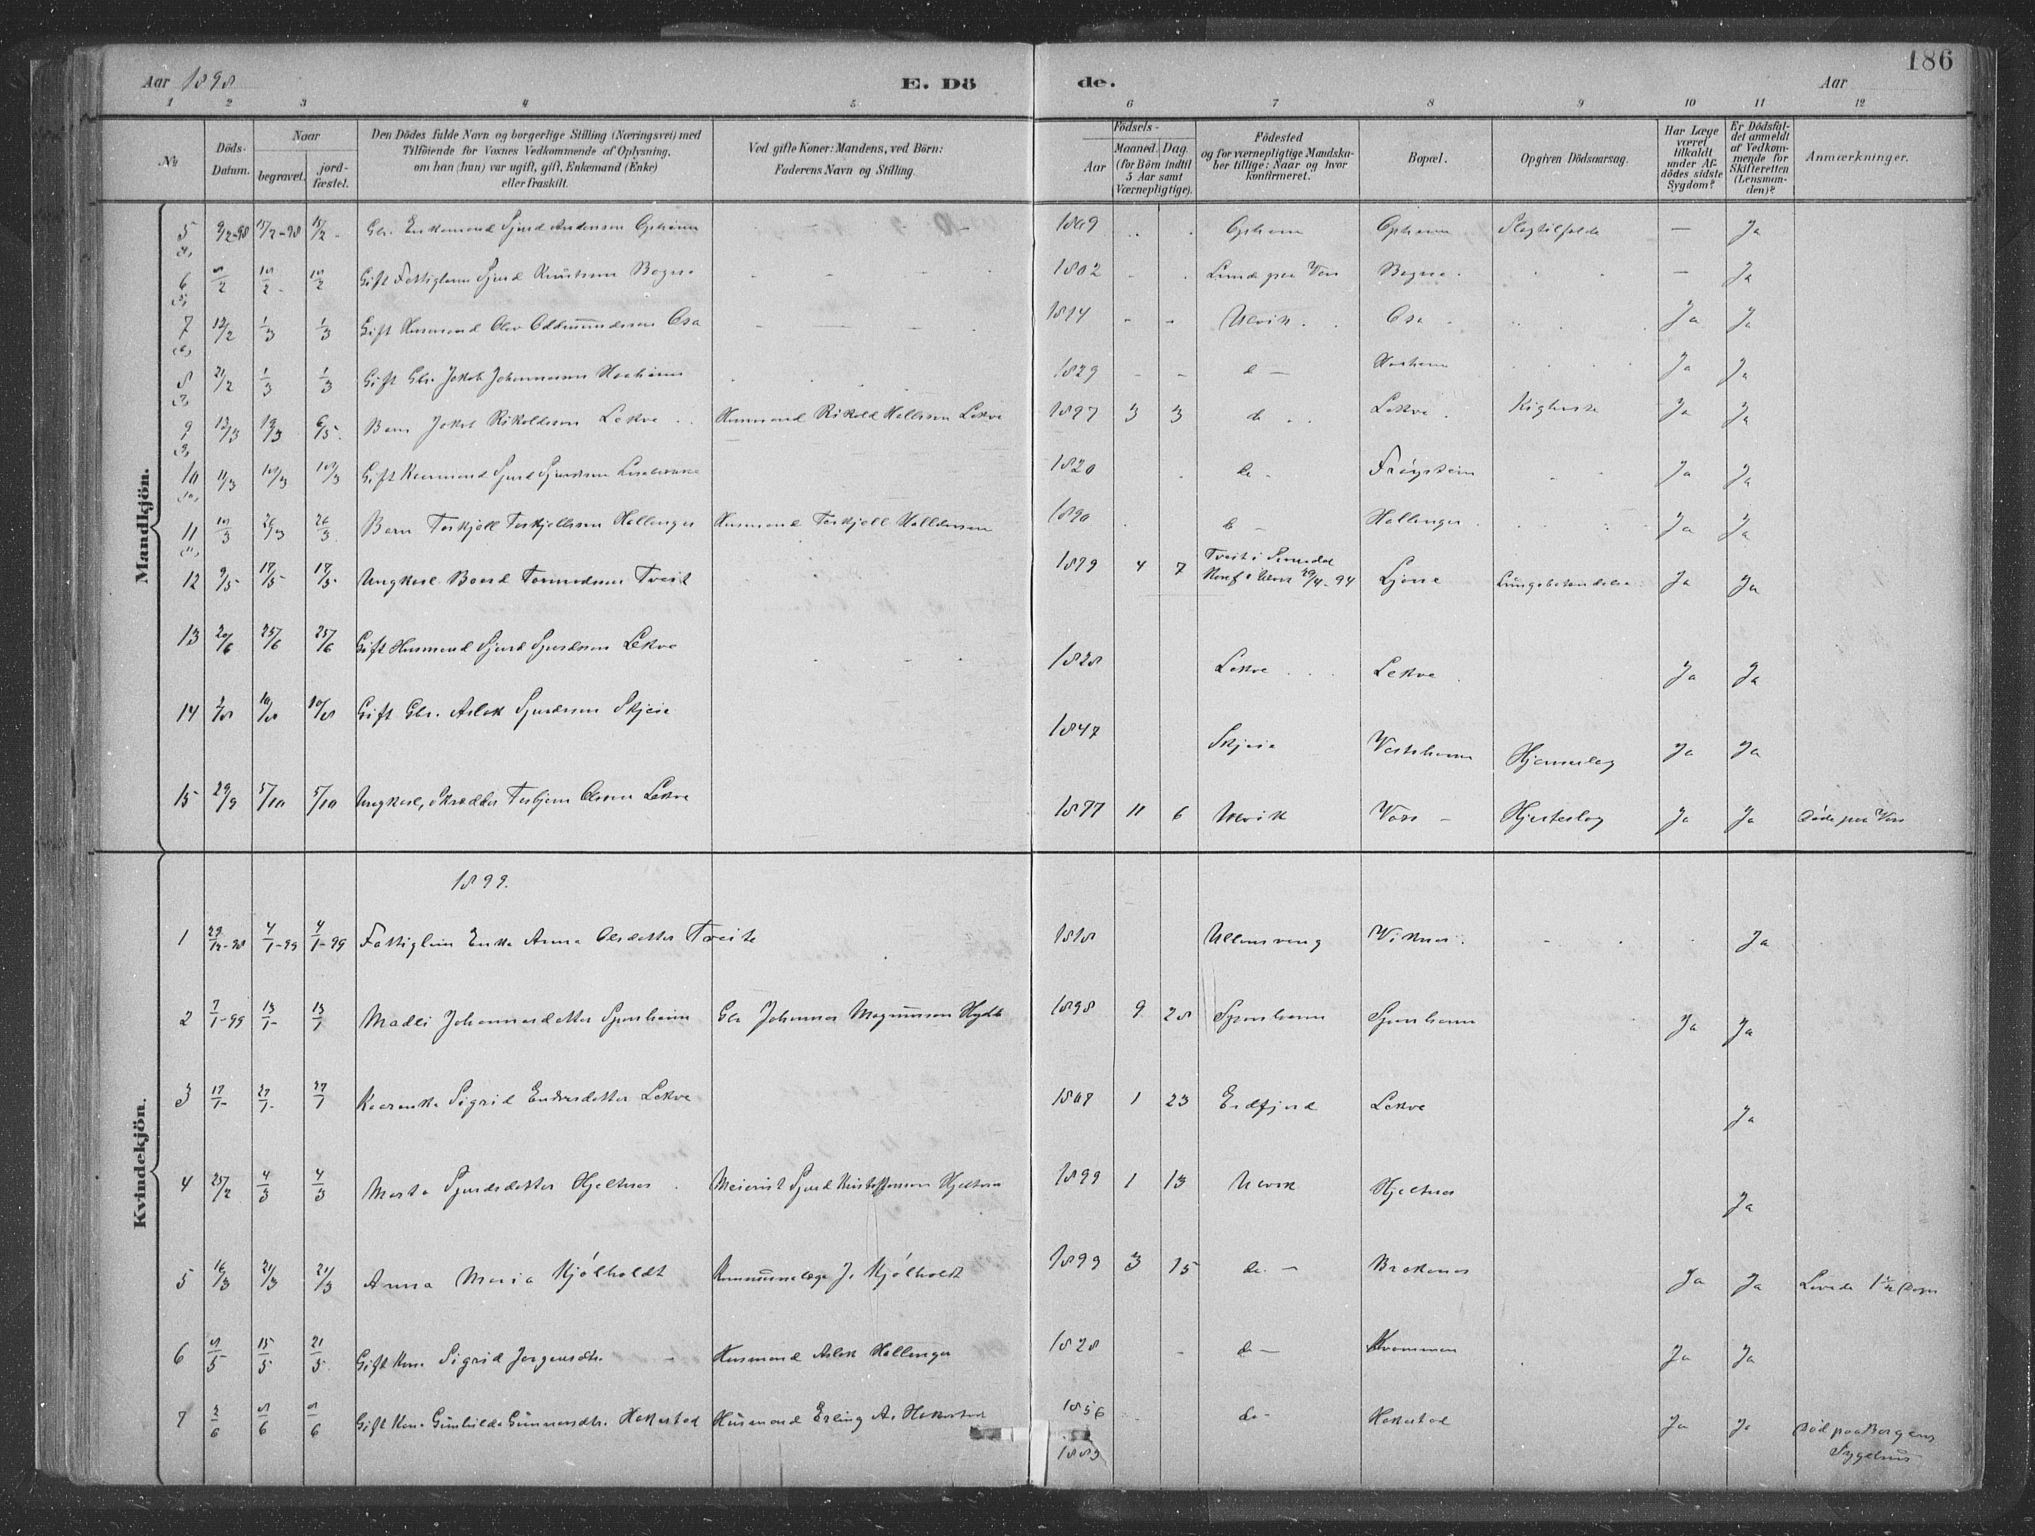 186
Aar 1898
E. Dö
de.
Aar
1 2 3 4 5 6 7 8 9 10 11 12
No
Döds-Datum.
Naar
begravet.
jordfæstet.
Den Dödes fulde Navn og borgerlige Stilling (Næringsvei) med
Tilföiende for Voxnes Vedkommende af Oplysning,
om han (hun) var ugift, gift, Enkemand (Enke)
eller fraskilt.
Ved gifte Koner: Mandens, ved Börn:
Faderens Navn og Stilling.
Födsels-
Aar
Maaned. Dag.
(for Börn indtil
5 Aar samt
Værnepligtige).
Födested
og for værnepligtige Mandska-
ber tillige: Naar og hvor
konfirmeret.
Bopæl.
Opgiven Dödsaarsag.
Har Læge
været
tilkaldt
under Af-
dödes sidste
Sygdom?
Er Dödsfal-
det anmeldt
af Vedkom-
mende for
Skifteretten
(Lensman-
den)?
Anmærkninger.
Mandkjön.
5 9/2-98 15/2-98 15/2 Gbr. Enkemand Sjurd Andersen Opheim Opheim Opheim Slagtilfelde — Ja
6 Gift Fattiglem Sjurd Knutsen 1802 Lunde paa Voss — Ja
7 12/2 1/3 1/3 Gift Husmand Olav Oddmundsen Osa 1814 Ulvik Osa Ja Ja
8 21/2 1/3 1/3 Gift Gbr. Jakob Johannessen Haaheim 1829 d— Haaheim Ja Ja
9 12/3 19/3 6/5 Barn Jakob Rikoldsen Lekve Husmand Rikold Hallesen Lekve 1897 3 3 do Lekve Kighoste Ja Ja
10 11/3 Gift Kaarmand Sjurd Sjurdsen 1820 do Frøystein Ja Ja
11 26/3 26/3 Barn Torkjell Torkjellsen Hallenger Husmand Torkjell Halldorsen 1890 d— Hallenger Ja Ja
12 9/5 17/5 17/5 Ungkarl Baard Tormodsen Tveit 1879 4 7 Tveit i
Konf i Ulvik 29/4-94 Ljone Lungebetændelse Ja Ja
13 20/6 25/6 25/6 Gift Husmand Sjurd Sjurdsen Lekve 1828 Lekve Lekve Ja Ja
14 2/8 10/8 10/8 Gift Gbr. Aslak Sjurdsen Skjeie 1847 Skjeie Vestrheim Hjerneslag Ja Ja
15 29/9 5/10 5/10 Ungkarl, Skrædder Torbjørn Olsen Lekve 1877 11 6 Ulvik Voss — Hjerteslag Ja Ja Døde paa Voss
Kvindekjön.
1899.
1 29/12-98 4/1-99 4/1-99 Fattiglem Enke Anna Olsdatter Tveite 1818 Ullensvang Viknes Ja
2 7/1-99 13/1- 13/1 Madli Johannesdatter Sponheim Gbr Johannes Magnussen 1898 9 28 Sponheim Sponheim Ja Ja
3 17/1- 27/1- 27/1 Kaarenke Sigrid Endresdatter Lekve 1807 1 23 Eidfjord Lekve Ja
4 25/2 4/3 4/3 Marta Sjurdsdatter Hjeltnes Meierist Sjurd Kristoffersen Hjeltnes 1899 1 13 Ulvik Hjeltnes Ja
5 16/3 21/3 21/3 Anna Maria Kjølholdt Kommunelæge J. Kjølholdt 1899 3 15 do. — Brakenes Ja Ja Levede 1½ Dage
6 15/5 21/5 Gift Kone Sigrid Jørgensdtr. Husmand Aslak Hallenger 1828 d— Kvammen Ja Ja
7 2/6 Gift Kone Gunhilda Gunnarsdtr. Hakestad Husmand Erling A. Hakestad 1856 do— Hakestad Ja Ja Død paa Bergens
Sygehus
1889